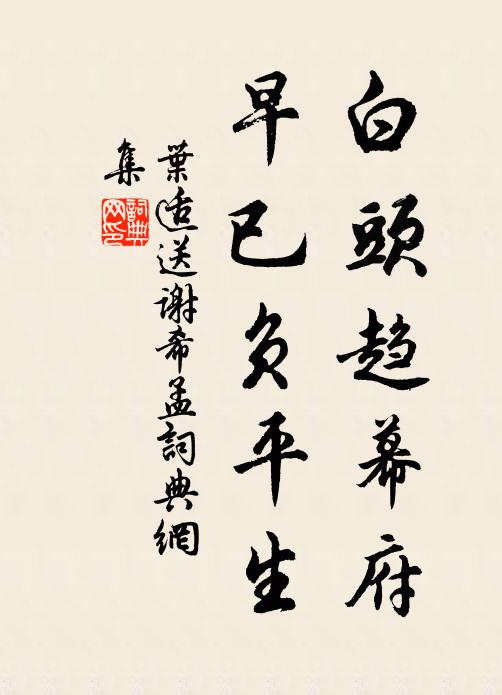 白頭趨幕府
早已負平生
葉適送謝希孟詞典網
集
詞典網印